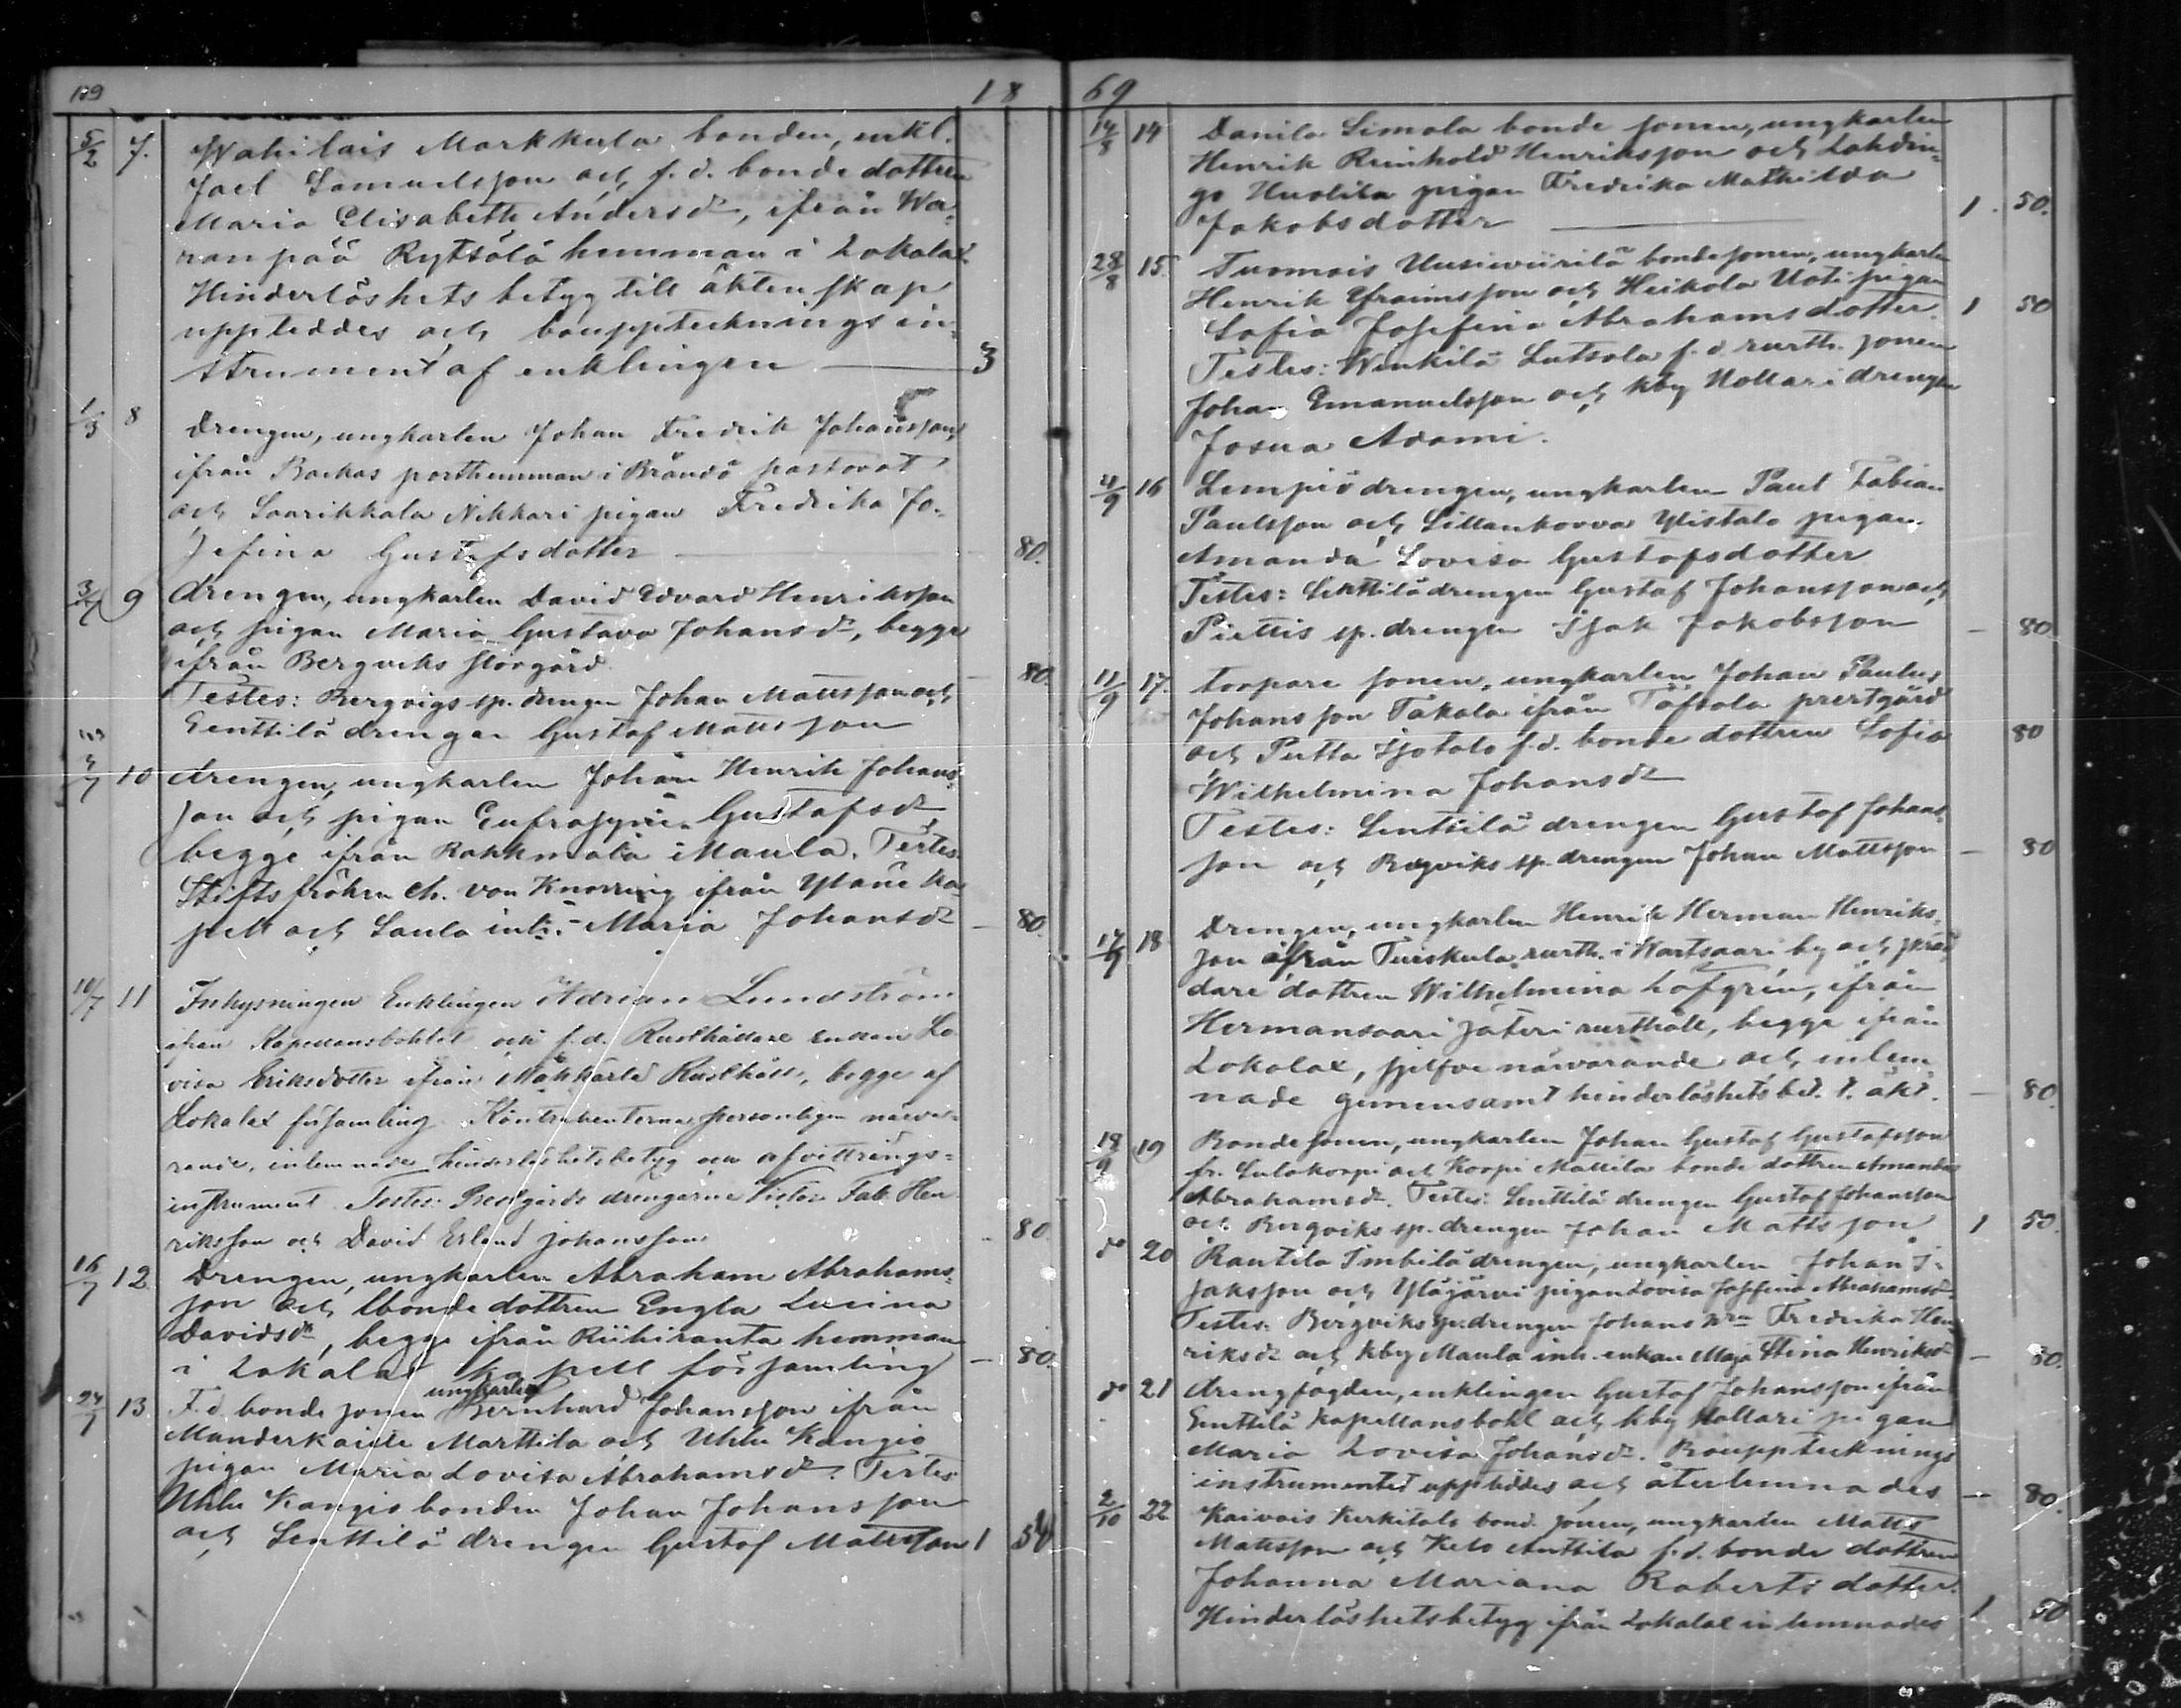 129 18
5/2 7. Wahilais Markkula bonden, enkl.
Joel Samuelsson och f. d. bonde dottren
Maria Elisabeth Andersdr, ifrån Wa-
ranpää Rytsölä hemman i Lokalax.
Hinderlöshets betyg till äktenskap
uppteddes och bouppteckningsin-
strument af enklingen — 3
1/3 8 Drengen, ungkarlen Johan Fredrik Johansson,
ifrån Backas posthemman i Brändö pastorat
och Saarikkala Nikkari pigan Fredrika Jo-
sefina Gustafsdotter — 80.
3/7 9 drengen, ungkarlen David Edvard Henriksson
och pigan Maria Gustava Johansdr, begge
ifrån Bergviks storgård — 80.
Testes: Bergvigs sp. drengen Johan Mattsson och
Senttilä drengen Gustaf Mattsson
4/7 10 drengen, ungkarlen Johan Henrik Johans-
son och pigan Eufrosyne Gustafsdr
begge ifrån Rahkmala Maula. Testes
Stiftsfröken Ch. von Knorring ifrån Yläne ka-
pell och Saula inh. Maria Johansdr — 80.
10/7 11 Inhysningen Enklingen Adrian Lundström
ifrån Kapellansbohlet och f. d. Rusthållare enkan Lo-
visa Eriksdotter ifrån Rusthåll, begge af
Lokalax församling. Kontrahenterna personligen närva-
rande, inlemnade hinderlöshetsbetyg och afvittrings-
instrument. Testes: Prestgårds drengarne Viktor Fab. Hen-
riksson och David Erland Johansson — 80.
16/7 12. Drengen, ungkarlen Abraham Abrahams-
son och bonde dottren Engla Lucina
Davidsdr, begge ifrån Riihiranta hemman
i Lokalax kapell församling — 80.
ungkarlen
24/7 13. F. d. bonde sonen Bernhard Johansson ifrån
Manderkaisle Marttila och Uhlu Kangis
pigan Maria Lovisa Abrahamsdr. Testes
Uhlu Kangis bonden Johan Johansson
och Senttilä drengen Gustaf Mattsson 1 50
69
14/8 14 Danila Simola bonde sonen, ungkarlen
Henrik Reinhold Henriksson och Lahdin-
go Huolila pigan Fredrika Mathilda
Jakobsdotter — 1. 50.
28/8 15. Tuomois Uusiwiirilä bondesonen, ungkarlen
Henrik Efraimsson och Heikola Uoti pigan
Sofia Josefina Abrahamsdotter. 1 50
Testes: Winkilä Lutsola f. d. rusth. sonen
Johan Emanuelsson och kby Nollari drengen
Josua Adami.
4/9 16 Lempiö drengen, ungkarlen Paul Fabian
Paulsson och Sillankorva Ylistalo pigan
Amanda Lovisa Gustafsdotter
Testes: Senttilä drengen Gustaf Johansson och
Piettis sp. drengen Isak Jakobsson — 80
11/9 17. torpare sonen, ungkarlen Johan Paulus
Johansson Takala ifrån Töfsala prestgård
och Putta Isotalo f. d. bonde dottren Sofia 80
Wilhelmina Johansdr
Testes: Senttilä drengen Gustaf Johans-
son och Bergviks sp. drengen Johan Mattsson — 80
17/9 18 Drengen, ungkarlen Henrik Herman Henriks-
son ifrån Tuiskula rusth. i Wartsaari by och skräd-
dare dottren Wilhelmina Löfgrén, ifrån
Hermansaari Säteri rusthåll, begge ifrån
Lokalax, sjelfve närvarande och inlem-
nade gemensamt hinderlöshetsbet. t. äkt. — 80.
18/9 19 Bondesonen, ungkarlen Johan Gustaf Gustafsson
fr. Sulakorpi och Korpi Mattila bonde dottren Amanda
Abrahamsdr. Testes: Senttilä drengen Gustaf Johansson
och Bergviks sp. drengen Johan Mattsson 1 50.
do 20 Rantila Imbilä drengen, ungkarlen Johan I-
saksson och Yläjärvi pigan Lovisa Josefina Abrahamsdr.
Testes: Bergviks sp. drengen Johans Fredrika Hen-
riksdr och kby Maula inh. enkan Maja Stina Henriksdr — 80.
do 21 drengfogden, enklingen Gustaf Johansson ifrån
Senttilä kapellansbohl och kby Nollari pigan
Maria Lovisa Johansdr. Bouppteknings
instrumentet uppteddes och återlemnades — 80.
2/10 22 Kaivois Kerkitalo bond. sonen, ungkarlen Matts
Mattsson och Keto Anttila f. d. bonde dottren
Johanna Mariana Robertsdotter.
Hinderlöshetsbetyg ifrån Lokalax inlemnades 1 50